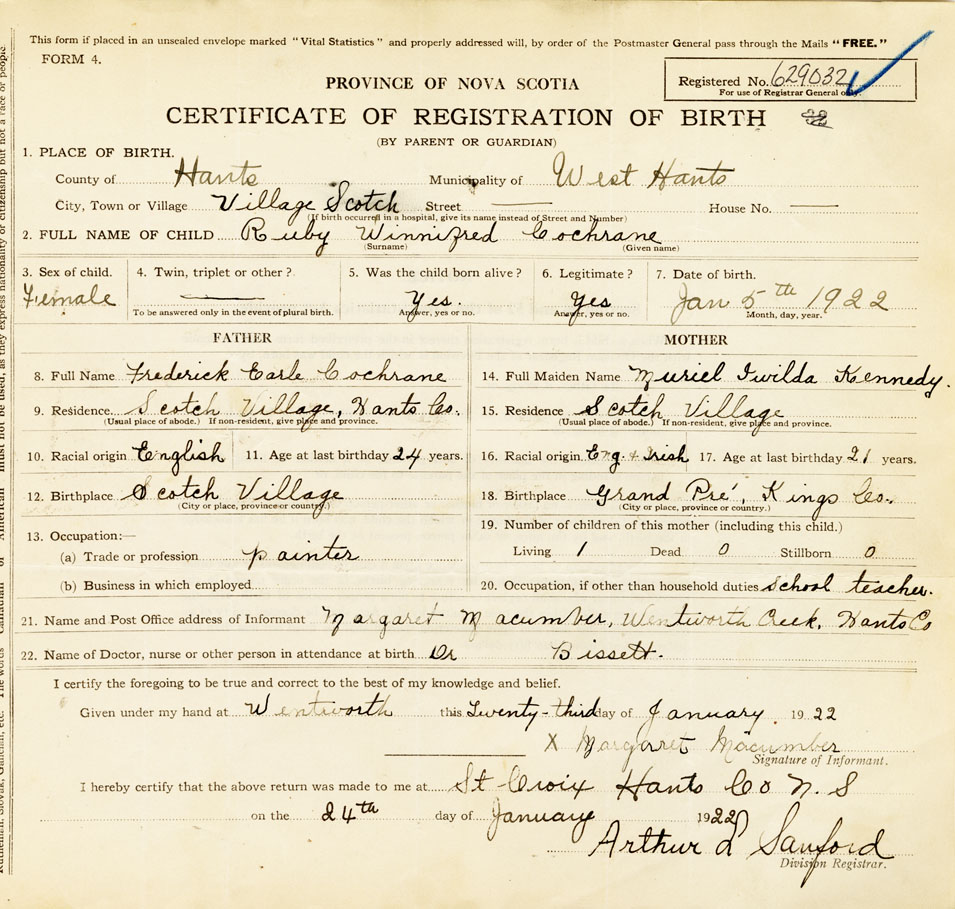 This form if placed in an unsealed envelope marked "Vital Statistics" and properly addressed will, by order of the Postmaster General pass through the Mails "FREE."
FORM 4.
Registered No. 629032
For use of Registrar General only.
PROVINCE OF NOVA SCOTIA
CERTIFICATE OF REGISTRATION OF BIRTH
(BY PARENT OR GUARDIAN)
1. PLACE OF BIRTH.
County of Hants Municipality of West Hants
City, Town or Village Village Scotch Street — House No. —
(If birth occurred in a hospital, give its name instead of Street and Number)
2. FULL NAME OF CHILD Ruby Winnifred Cochrane
(Surname) (Given name)
3. Sex of child. 4. Twin, triplet or other? 5. Was the child born alive? 6. Legitimate? 7. Date of birth.
Female — Yes. Yes Jan 5th 1922
To be answered only in the event of plural birth. Answer, yes or no. Answer, yes or no. Month, day, year.
FATHER MOTHER
8. Full Name Frederick Earle Cochrane 14. Full Maiden Name Muriel Iwilda Kennedy.
9. Residence. Scotch Village, Hants Co. 15. Residence Scotch Village
(Usual place of abode.) If non-resident, give place and province. (Usual place of abode.) If non-resident, give place and province.
10. Racial origin English 11. Age at last birthday 24 years. 16. Racial origin Eng. & Irish 17. Age at last birthday 21 years.
12. Birthplace Scotch Village 18. Birthplace Grand Pré, Kings Co.
(City or place, province or country.) (City or place, province or country.)
13. Occupation:— 19. Number of children of this mother (including this child.)
(a) Trade or profession painter Living 1 Dead 0 Stillborn 0
(b) Business in which employed 20. Occupation, if other than household duties School teacher.
21. Name and Post Office address of Informant Margaret Macumber, Wentworth Creek, Hants Co
22. Name of Doctor, nurse or other person in attendance at birth Dr Bissett.
I certify the foregoing to be true and correct to the best of my knowledge and belief.
Given under my hand at Wentworth this Twenty-third day of January 1922
X Margaret Macumber
Signature of Informant.
I hereby certify that the above return was made to me at St Croix Hants Co N.S
on the 24th day of January 1922
Arthur L Sanford
Division Registrar.